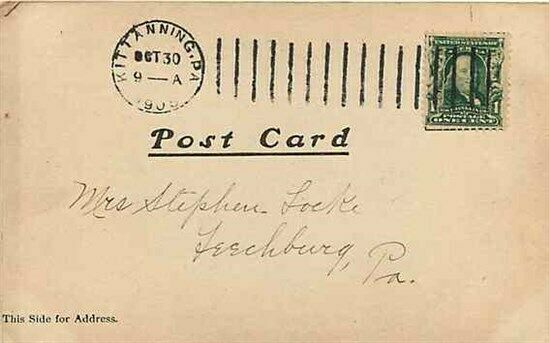 KITTANNING, PA
OCT 30
9—A
UNITED STATES OF
1
POSTAGE
ONE CENT
Post Card
Mrs Stephen Locke
Leechburg,
Pa.
This Side for Address.